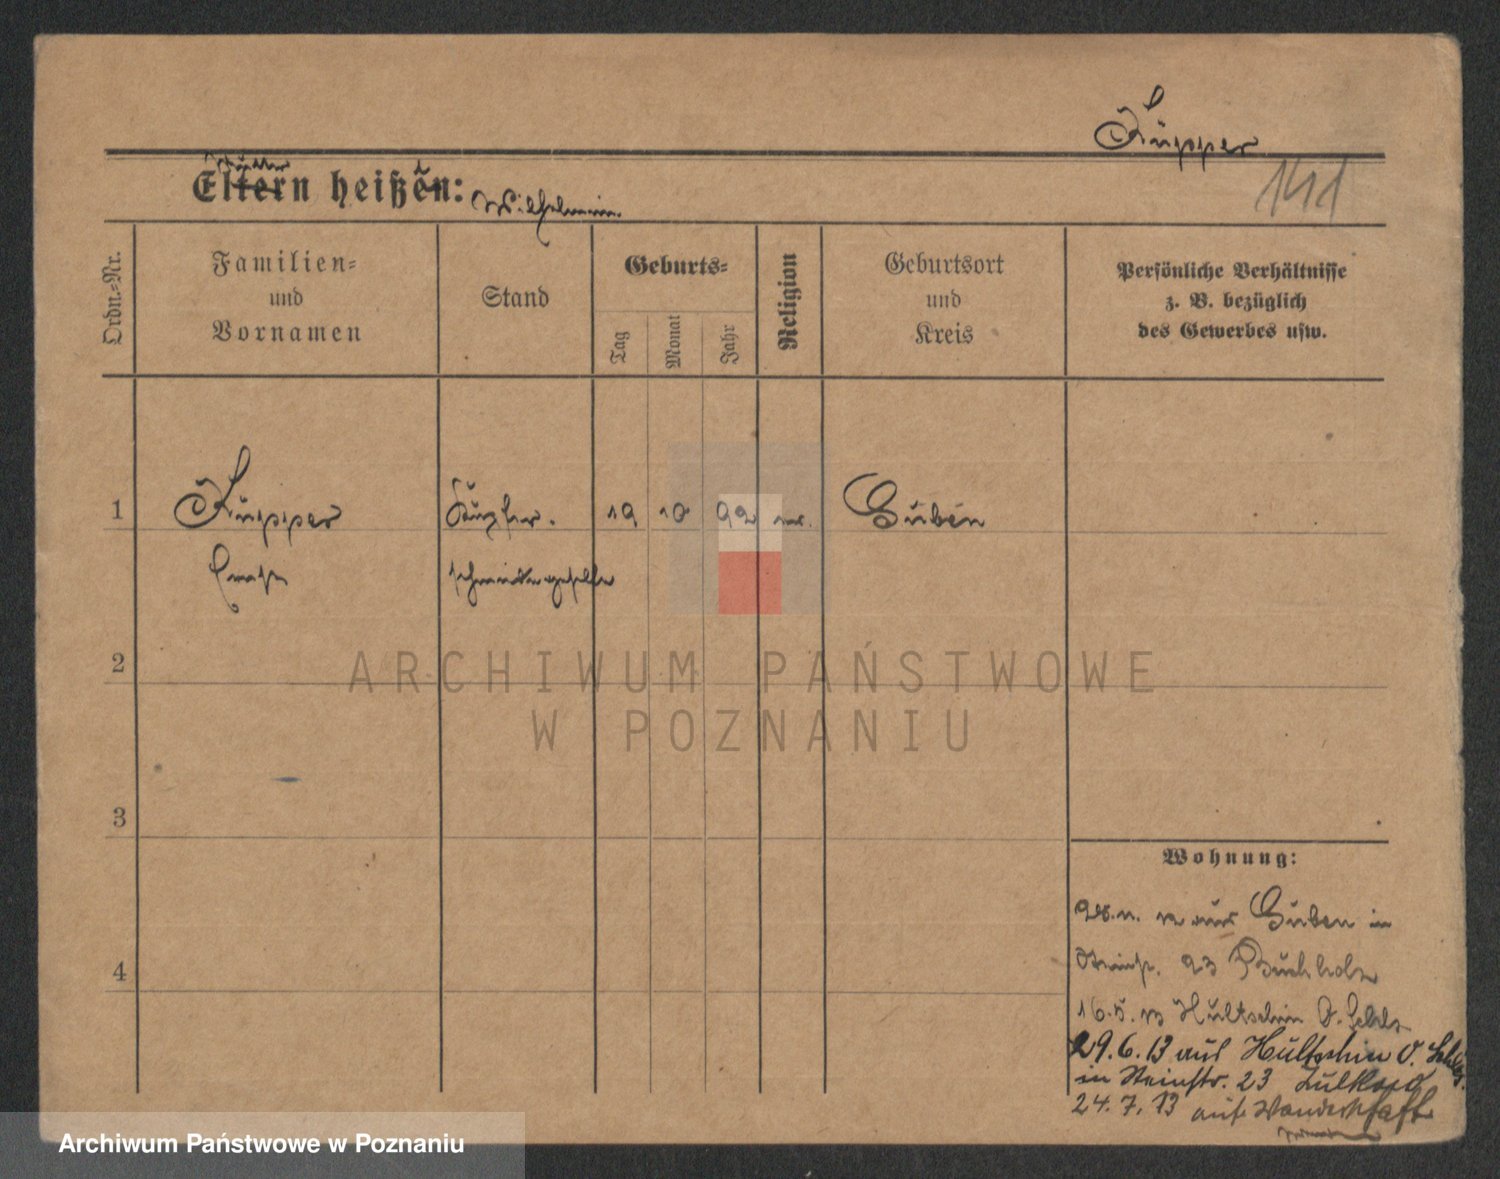 Küpper
141
Mutter
Eltern heißen: Wilhelmine
Ordn.=Nr.
Familien=
und
Vornamen
Stand
Geburts=
Tag
Monat
Jahr
Religion
Geburtsort
und
Kreis
Persönliche Verhältnisse
z. B. bezüglich
des Gewerbes usw.
1
Küpper
Ernst
Kupfer.
schmiedegeselle
19 10 92
Guben
2
3
4
Wohnung:
aus Guben in
Steinstr. 23 Buchholz
16.5.13 Hultschin O. Schles
29.6.13 aus Hultschin O. Schles.
in Steinstr. 23
24.7.13 auf Wanderschaft
ARCHIWUM PAŃSTWOWE
W POZNANIU
Archiwum Państwowe w Poznaniu